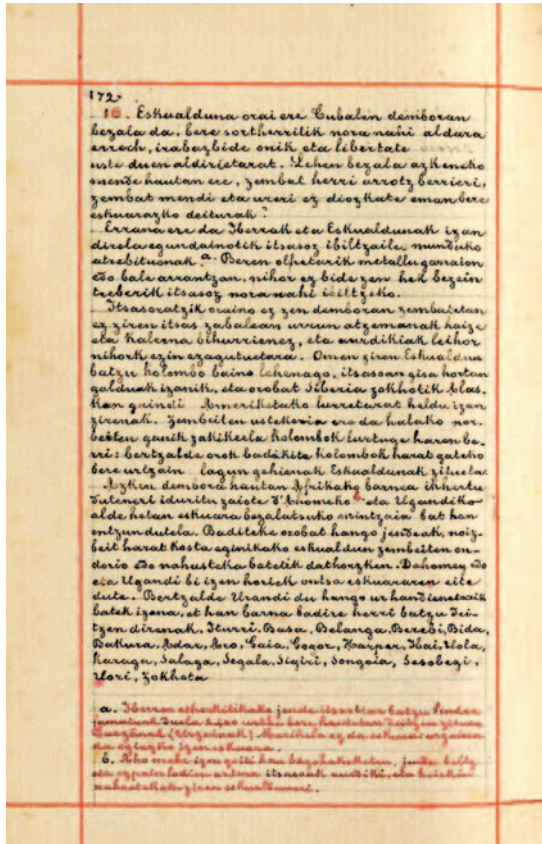 172.
10. Eskualduna orai ere Cubalen demboran
bezala da, bere sortherritik nora nahi aldara
errech, irabazbide onik eta libertate
uste duen aldirietarat. Lehen bezala azkeneko
mende hautan ere, zembat herri arrotz berrieri,
zembat mendi eta ureri ez diozkate eman bere
eskuarazko deiturak?
Errana ere da Iberrak eta Eskualdunak izan
direla egundainotik itsasoz ibiltzaile munduko
atrebituenak. a. Beren olhetarik metallu garraion
edo bale arrantzan, nihor ez bide zen hek bezein
treberik itsasoz nora nahi ibiltzeko.
Itsasoratzik oraino ez zen demboran zembaietan
ez ziren itsas zabalean urrun atzemanak haize
eta kalerna bihurrienez, eta aurdikiak leihor
nihork ezin ezagutuetara. Omen ziren Eskualdun
batzu Kolombo baino lehenago, itsasoan gisa hortan
galduak izanik, eta orobat Siberia zokhotik Alas-
kan gaindi Ameriketako lurretarat heldu izan
zirenak. Zembeiten ustekeria ere da halako nor-
beiten ganik zakikeela Kolombok lurtuge haren be-
rri: bertzalde orok badakite Kolombok harat gateko
bere urtzain lagun gehienak Eskualdunak zituela.
Azken dembora hautan Afrikako barnea ikhertu
duteneri iduritu zaiote d'Ahomeko b. eta Ugandiko
alde hetan eskuara bezalatsuko mintzaia bat han
entzun dutela. Baditeke orobat hango jendeak, noiz-
beit harat kosta eginikako eskualdun zembeiten on-
dorio edo nahusteka batetik dathorzken. Dahomey edo
eta Ugandi bi izen horiek ontsa eskuararen eite
dute. Bertzalde Urandi du hango ur handienetarik
batek izena, et han barna badire herri batzu dei-
tzen direnak. Iturri, Basa, Belanga, Berebi, Bida,
Bakura, Adar, Aro, Gaia, Gogor, Harper, Hai, Ilola,
Karaga, Salaga, Segala, Sigiri, Songoia, Sesobegi,
Uori, Zokhota
a. Iberren jende itsastiar batzu
duela 2,400 urthe bere
(Urzainak) ez da eskuan urzainia
da egiazko izen eskuara.
b. Aho mehe izen jende beltz
eta itsasoak aurdiki, eta heiekin
eskualdunari.